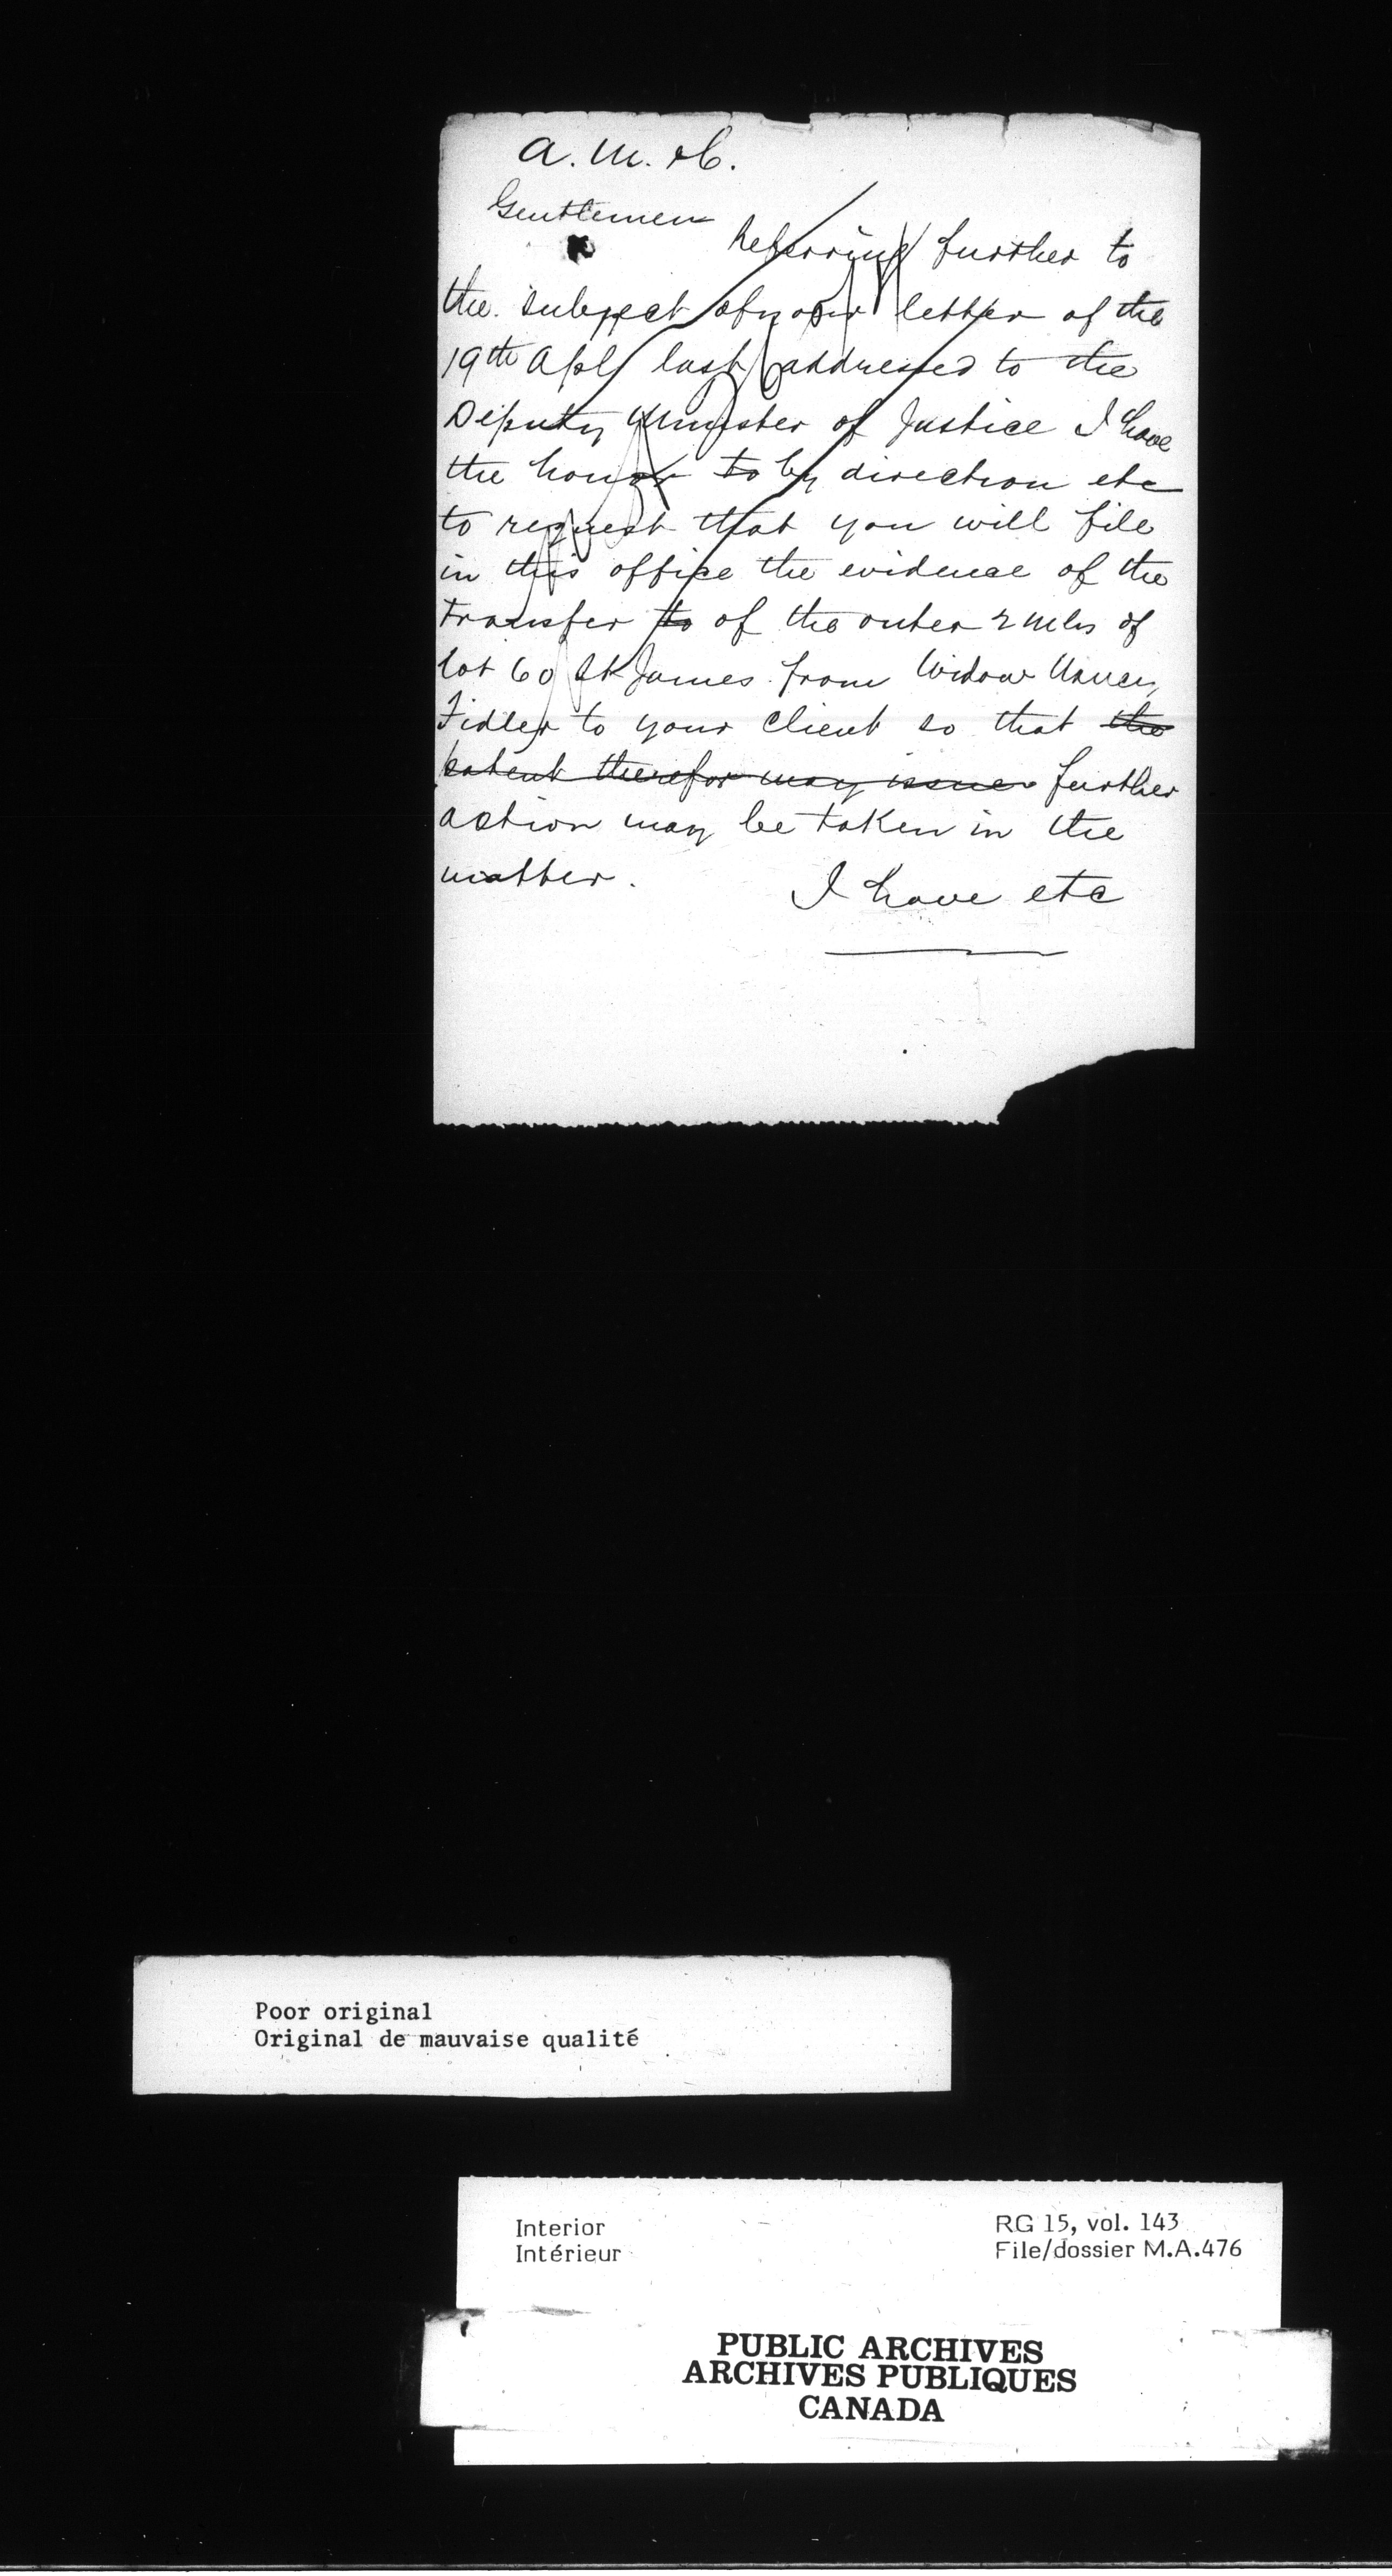 Gentlemen
Referring further to
the subject of your letter of the
19th Apl last addressed to the
Deputy Minister of Justice I have
the honor to by direction etc
to request that you will file
in this office the evidence of the
transfer to of the outer 2 miles of
lot 60 St James from Widow Nancy
Fidler to your client so that the
patent therefor may issue further
action may be taken in the
matter.
I have etc
Poor original
Original de mauvaise qualité
Interior
Intérieur
RG 15, vol. 143
File/dossier M.A.476
PUBLIC ARCHIVES
ARCHIVES PUBLIQUES
CANADA